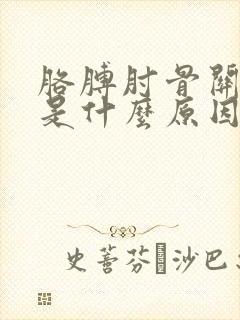 胳膊肘骨關
是什麼原因
史蒈芬·沙巴